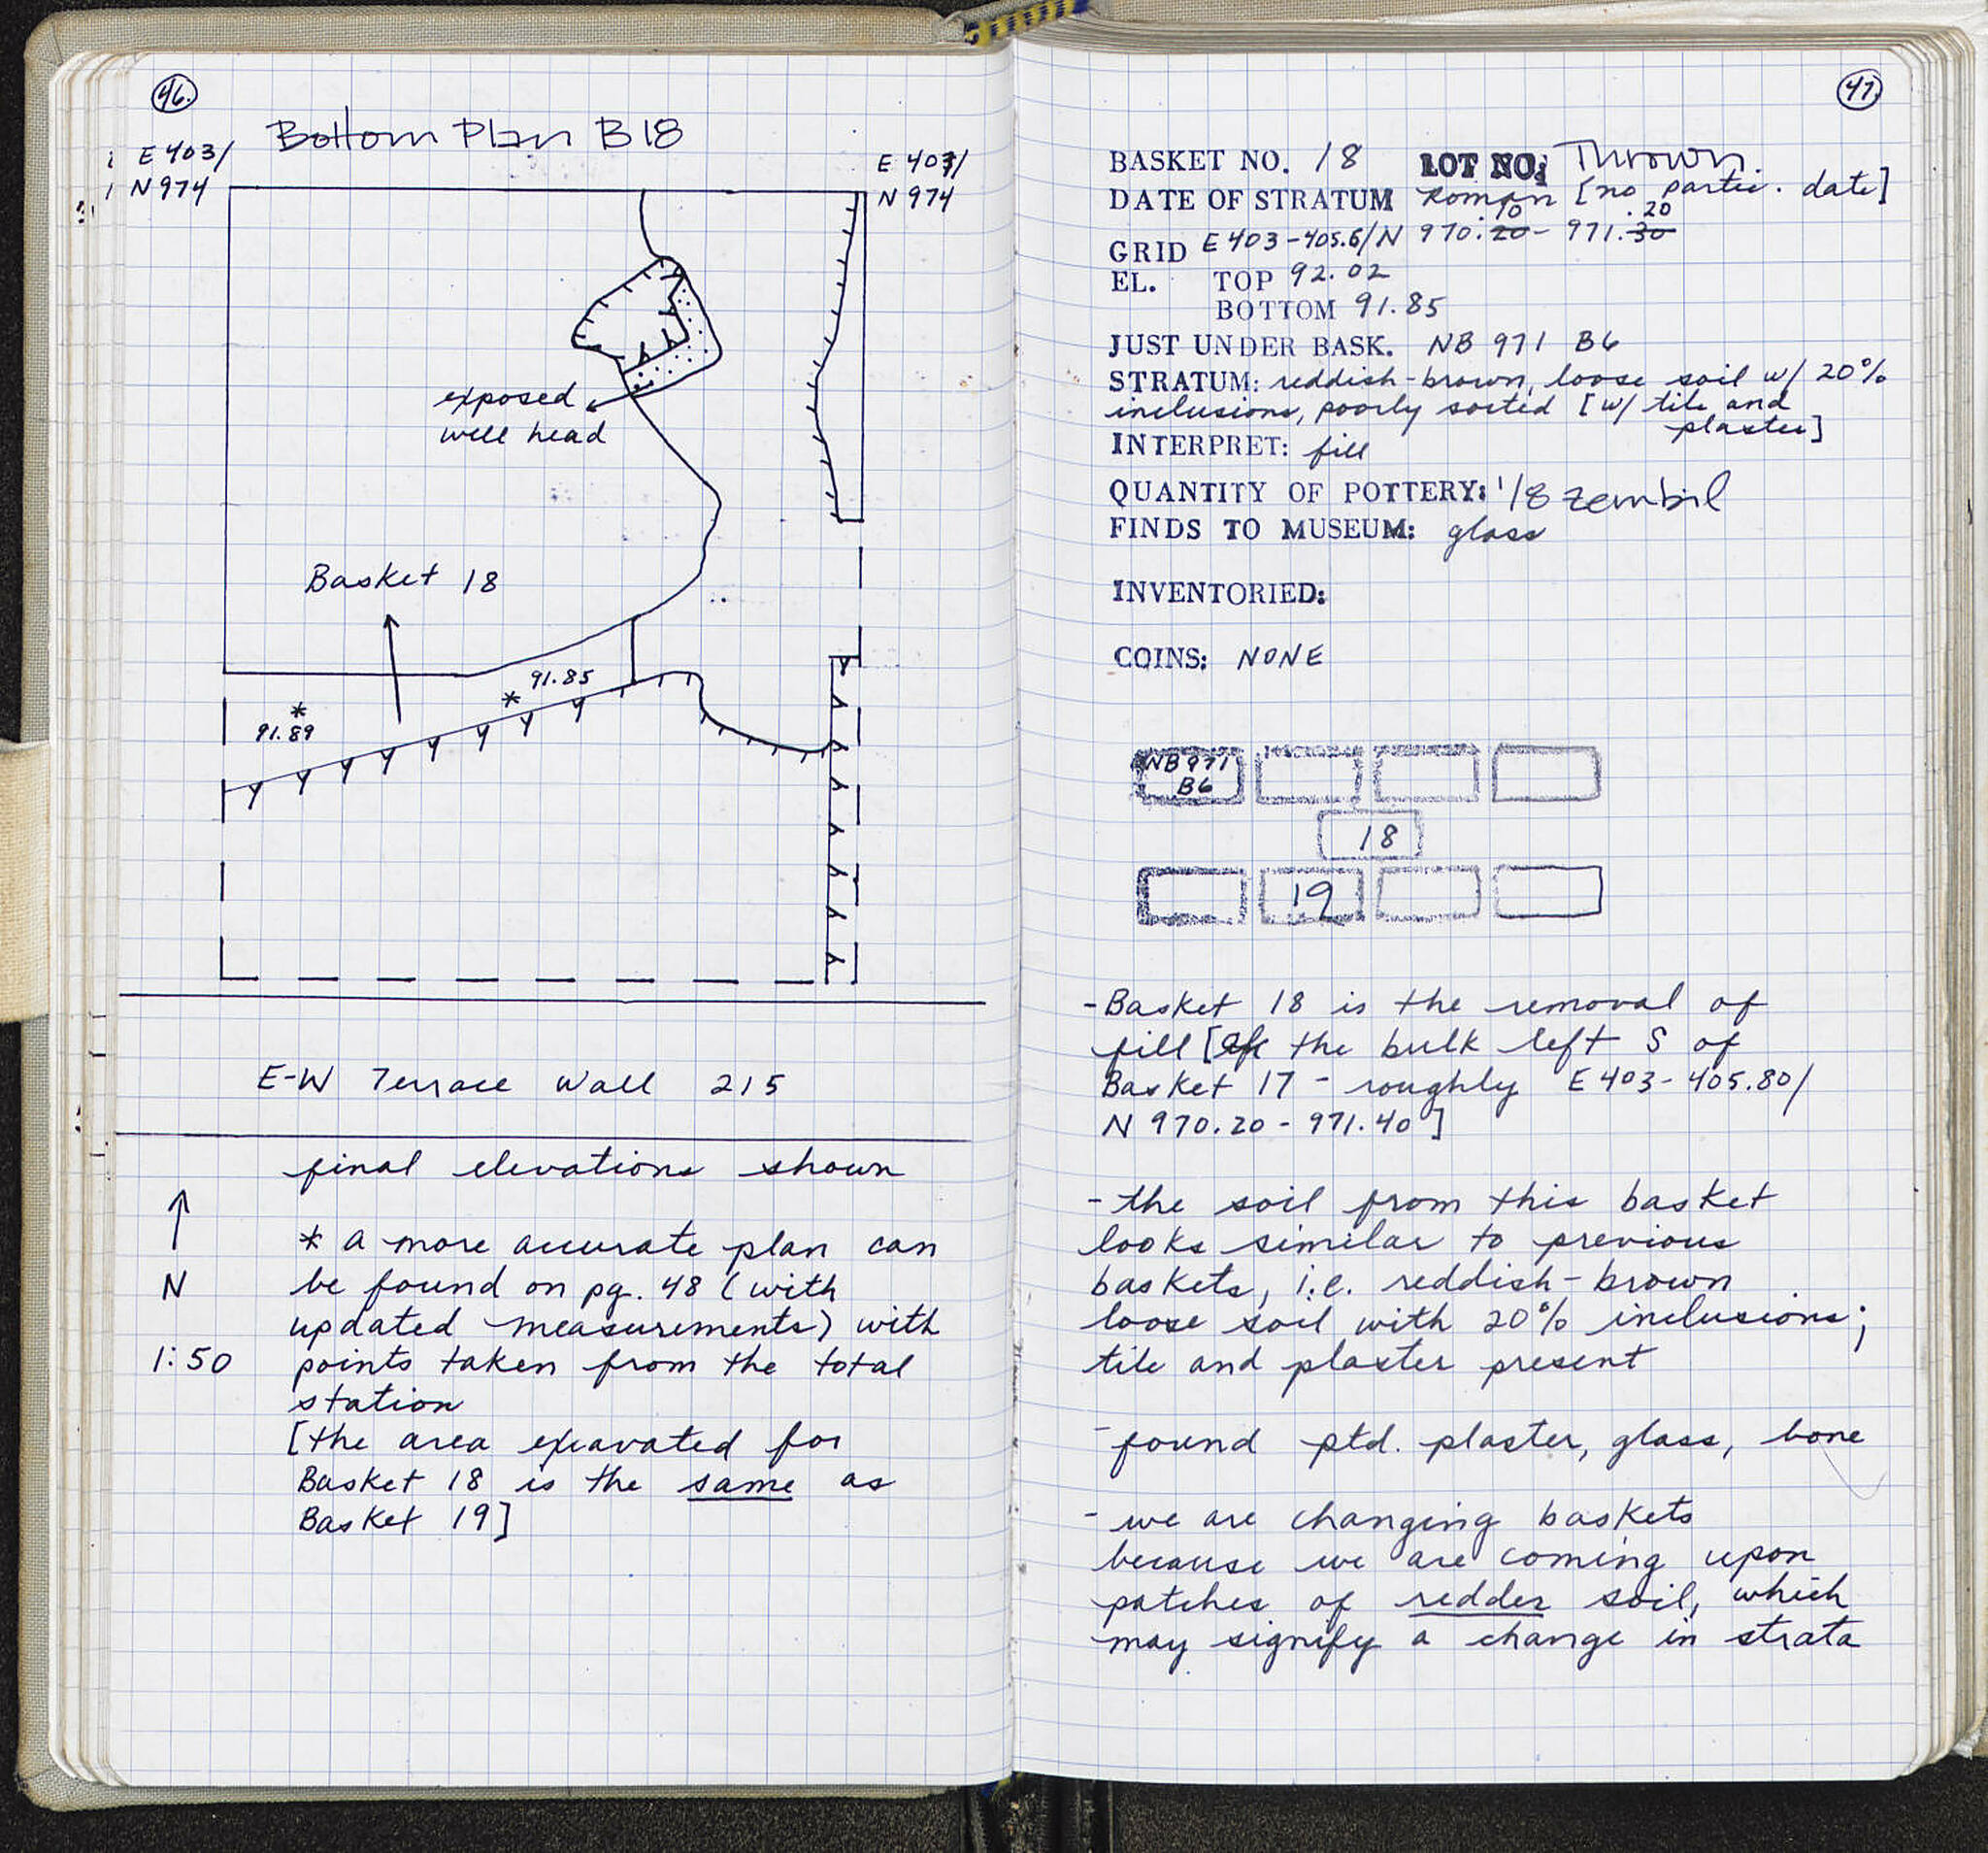 46.
Bottom Plan B18
E 403/
N 974
E 407/
N 974
exposed
well head
Basket 18
91.85
*
*
91.89
E-W Terrace Wall 215
final elevations shown
↑
N
1:50
* a more accurate plan can
be found on pg. 48 (with
updated measurements) with
points taken from the total
station
[the area excavated for
Basket 18 is the same as
Basket 19]
47.
BASKET NO. 18 LOT NO: Thrown.
DATE OF STRATUM Roman [no partic. date]
.10 .20
GRID E 403-405.6/N 970.20- 971.30
EL. TOP 92.02
BOTTOM 91.85
JUST UNDER BASK. NB 971 B6
STRATUM: reddish-brown, loose soil w/ 20%
inclusions, poorly sorted [w/ tile and
plaster]
INTERPRET: fill
QUANTITY OF POTTERY: 1/8 zembil
FINDS TO MUSEUM: glass
INVENTORIED:
COINS: NONE
NB 971
B6
18
19
-Basket 18 is the removal of
fill [of the bulk left S of
Basket 17 - roughly E 403-405.80/
N 970.20-971.40]
-the soil from this basket
looks similar to previous
baskets, i.e. reddish-brown
loose soil with 20% inclusions;
tile and plaster present
-found ptd. plaster, glass, bone
-we are changing baskets
because we are coming upon
patches of redder soil, which
may signify a change in strata